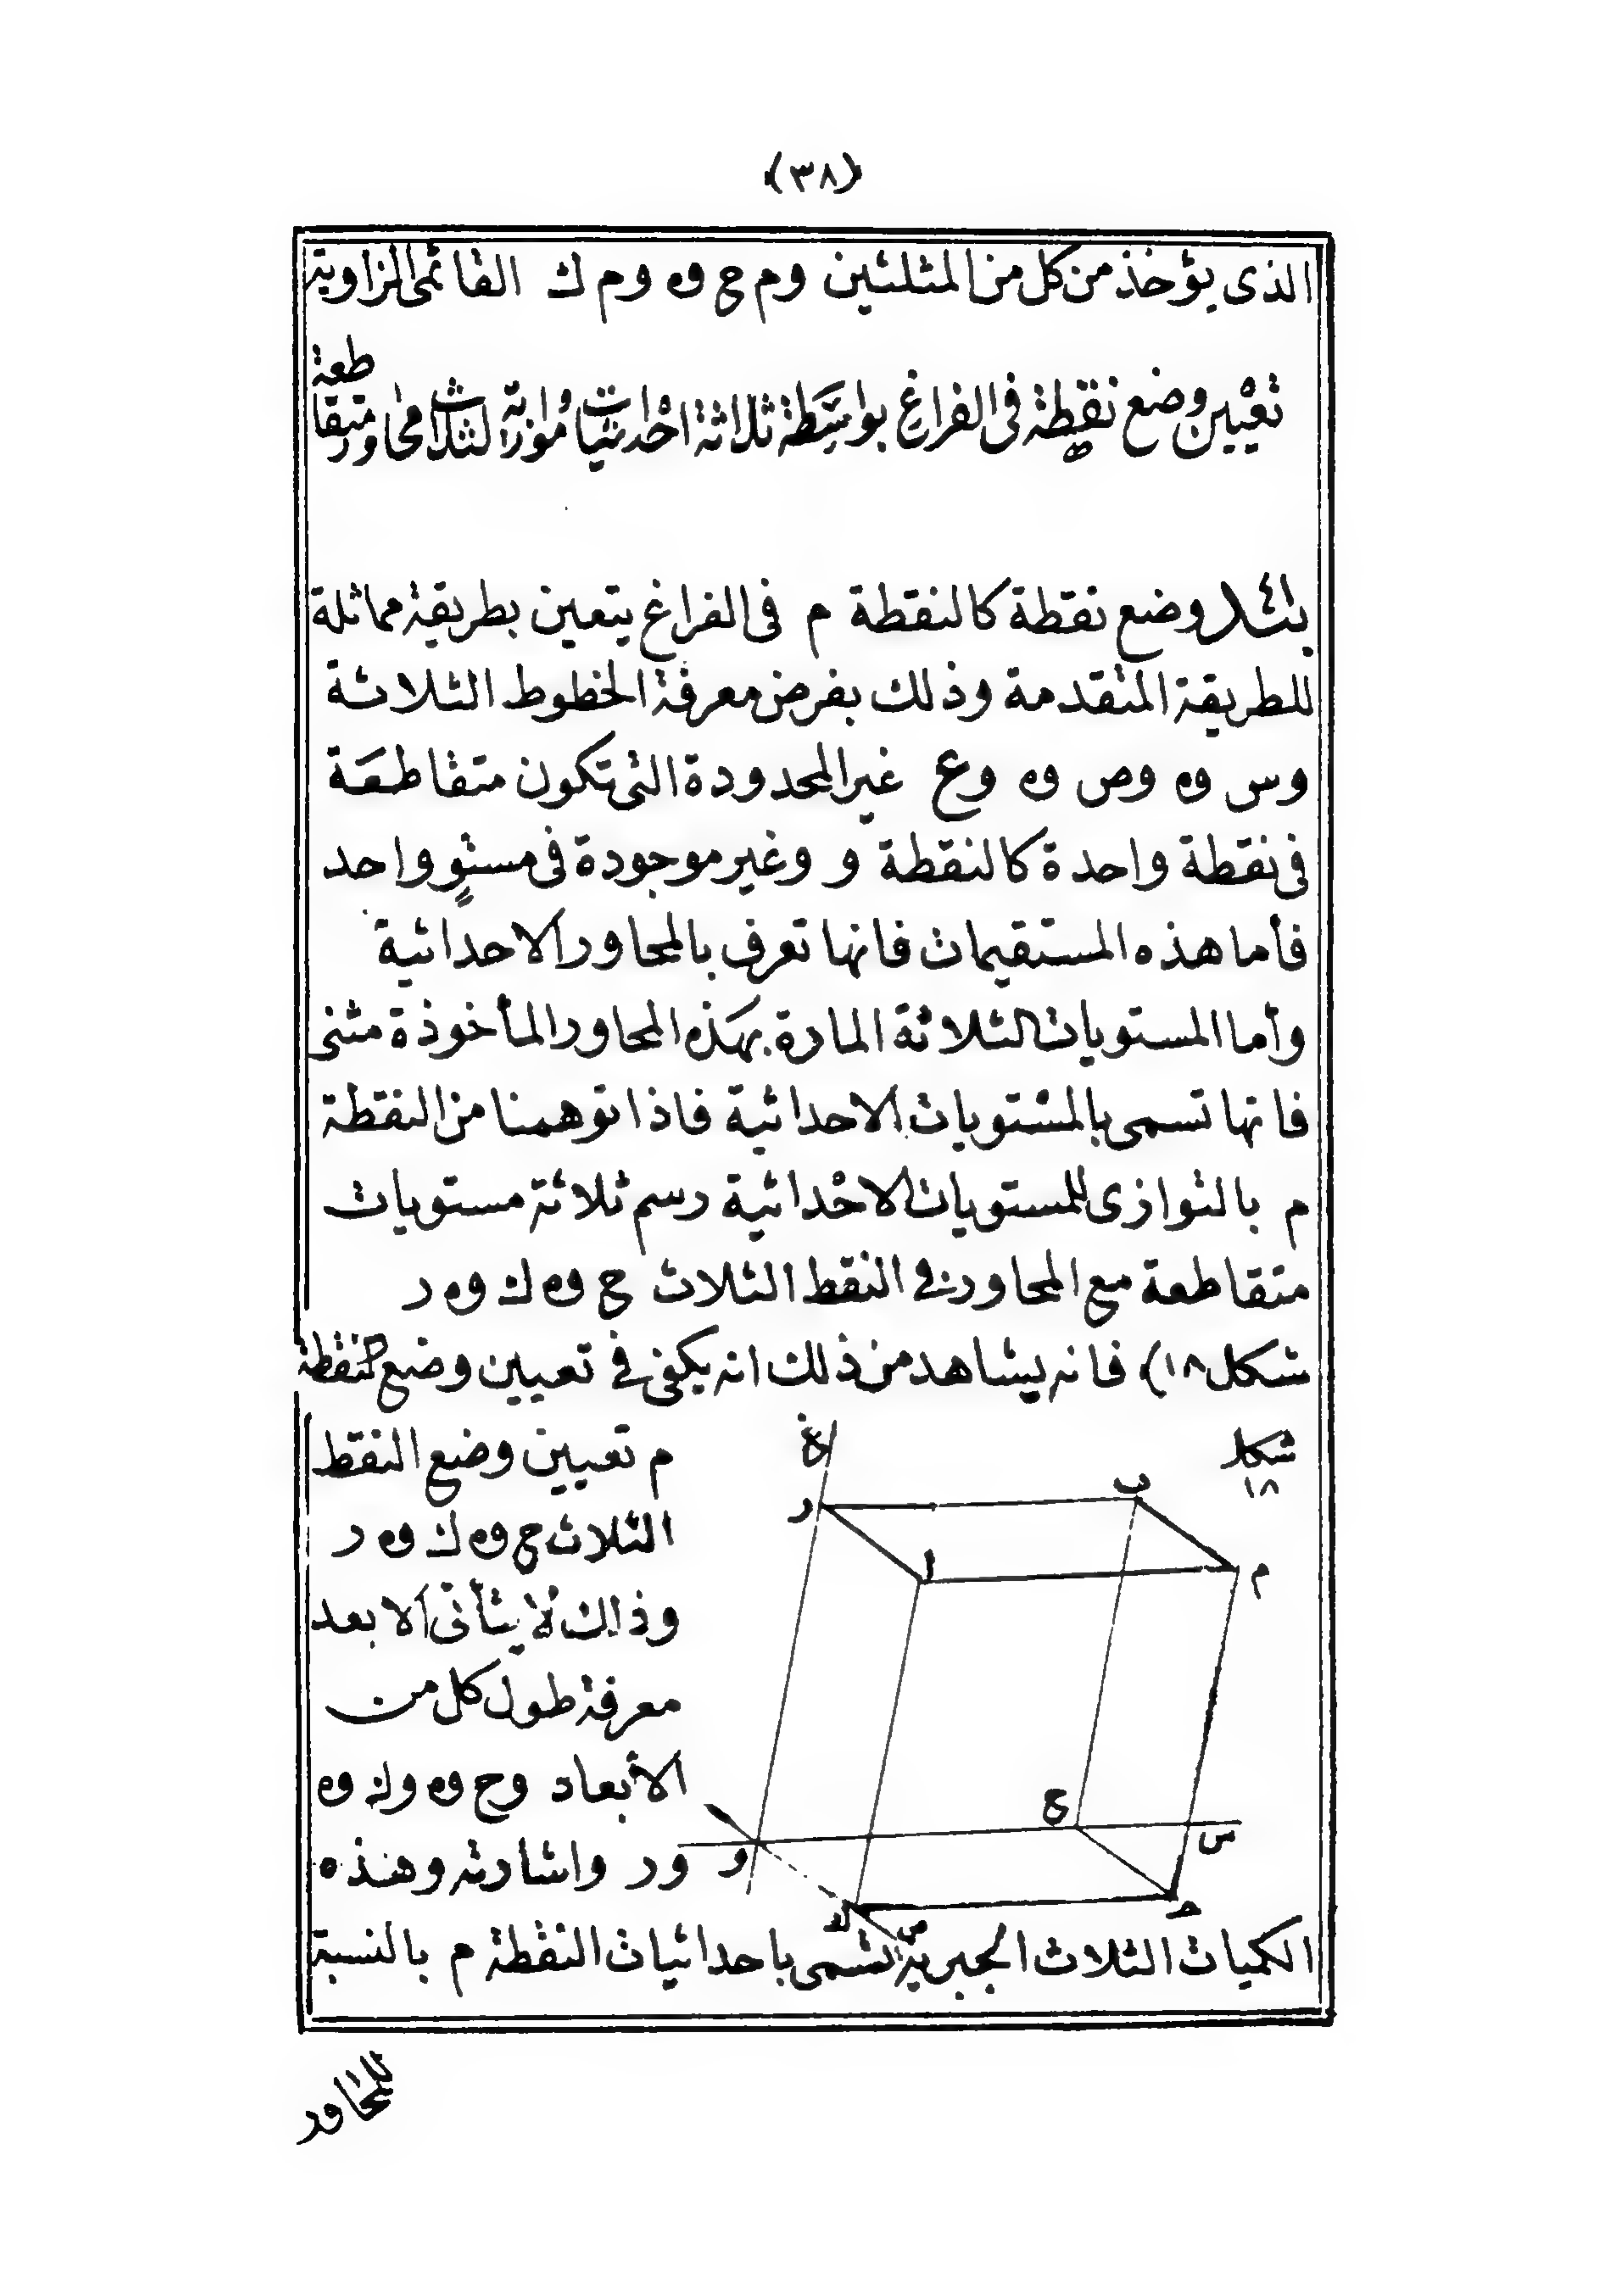 (٣٨)
الذى يؤخذ من كل من المثلثين وم ح وه وم ك القائمى الزاوية
تعيين وضع نقطة فى الفراغ بواسطة ثلاثة احداثيات موازية لثلاث محاور متقاطعة
وضع نقطة كالنقطة م فى الفراغ يتعين بطريقة مماثلة
للطريقة المتقدمة وذلك بفرض معرفة الخطوط الثلاثة
وس وه وص وه وع غير المحدودة التى تكون متقاطعة
فى نقطة واحدة كالنقطة و وغير موجودة فى مستوٍ واحد
فأما هذه المستقيمات فانها تعرف بالمحاور الاحداثية
وأما المستويات الثلاثة المارة بهذه المحاور المأخوذة مثنى
فانها تسمى بالمستويات الاحداثية فاذا توهمنا من النقطة
م بالتوازى للمستويات الاحداثية رسم ثلاثة مستويات
متقاطعة مع المحاور فى النقط الثلاث ح وه ك وه ر
شكل ١٨) فانه يشاهد من ذلك انه يكفى فى تعيين وضع النقطة
م تعيين وضع النقط
الثلاث ح وه ك وه ر
وذلك لا يتأتى الا بعد
معرفة طول كل من
الأبعاد وح وه وك وه
ور واشارته وهذه
شكل
١٨
ع
ر
ب
ا
م
ح
س
و
ك
ص
ح
الكميات الثلاث الجبرية تسمى باحداثيات النقطة م بالنسبة
للمحاور